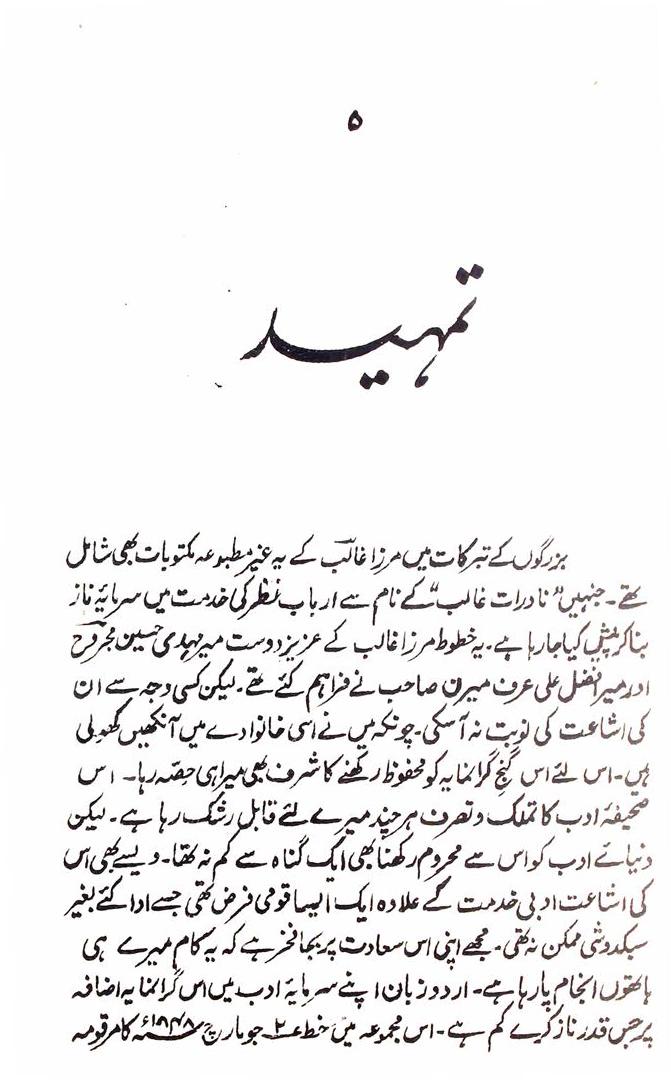 ۵
تمہید
بزرگوں کے تبرکات میں مرزا غالب کے یہ غیر مطبوعہ مکتوبات بھی شامل
تھے۔ جنہیں "نادرات غالب" کے نام سے ارباب نظر کی خدمت میں سرمایۂ ناز
بنا کر پیش کیا جا رہا ہے۔ یہ خطوط مرزا غالب کے عزیز دوست میر مہدی حسین مجروح
اور میر افضل علی عرف میرن صاحب نے فراہم کئے تھے۔ لیکن کسی وجہ سے ان
کی اشاعت کی نوبت نہ آسکی۔ چونکہ میں نے اسی خانوادے میں آنکھیں کھولی
ہیں۔ اس لئے اس گنج گرانمایہ کو محفوظ رکھنے کا شرف بھی میرا ہی حصہ رہا۔ اس
صحیفۂ ادب کا تملک و تصرف ہر چند میرے لئے قابل رشک رہا ہے۔ لیکن
دنیائے ادب کو اس سے محروم رکھنا بھی ایک گناہ سے کم نہ تھا۔ ویسے بھی اس
کی اشاعت ادبی خدمت کے علاوہ ایک ایسا قومی فرض تھی جسے ادا کئے بغیر
سبکدوشی ممکن نہ تھی۔ مجھے اپنی اس سعادت پر بجا فخر ہے کہ یہ کام میرے ہی
ہاتھوں انجام پا رہا ہے۔ اردو زبان اپنے سرمایۂ ادب میں اس گرانمایہ اضافہ
پر جس قدر ناز کرے کم ہے۔ اس مجموعہ میں خط ۲ جو مارچ ۱۸۴۸ء کا مرقومہ